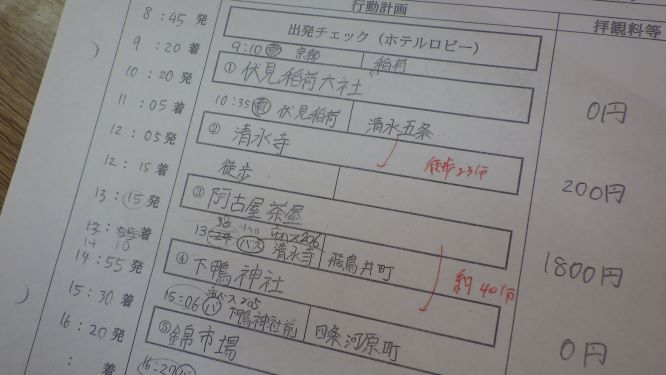 行動計画
拝観料等
8：45 発
出発チェック（ホテルロビー）
9：20 着
9:10 電 京都 稲荷
① 伏見稲荷大社
0円
10：20 発
10:35 電 伏見稲荷 清水五条
11：05 着
② 清水寺
徒歩23分
200円
12：05 発
徒歩
12：15 着
③ 阿古屋茶屋
1800円
13：15 発
38
市バス206
13: バス 清水寺 飛鳥井町
約40分
13：55 着
14 10
④ 下鴨神社
0円
14：55 発
市バス205
15：06 バ 下鴨神社前 四条河原町
15：30 着
⑤ 錦市場
16：20 発
： 着